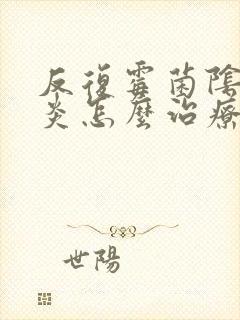 反復霉菌陰
炎怎麼治療
世陽